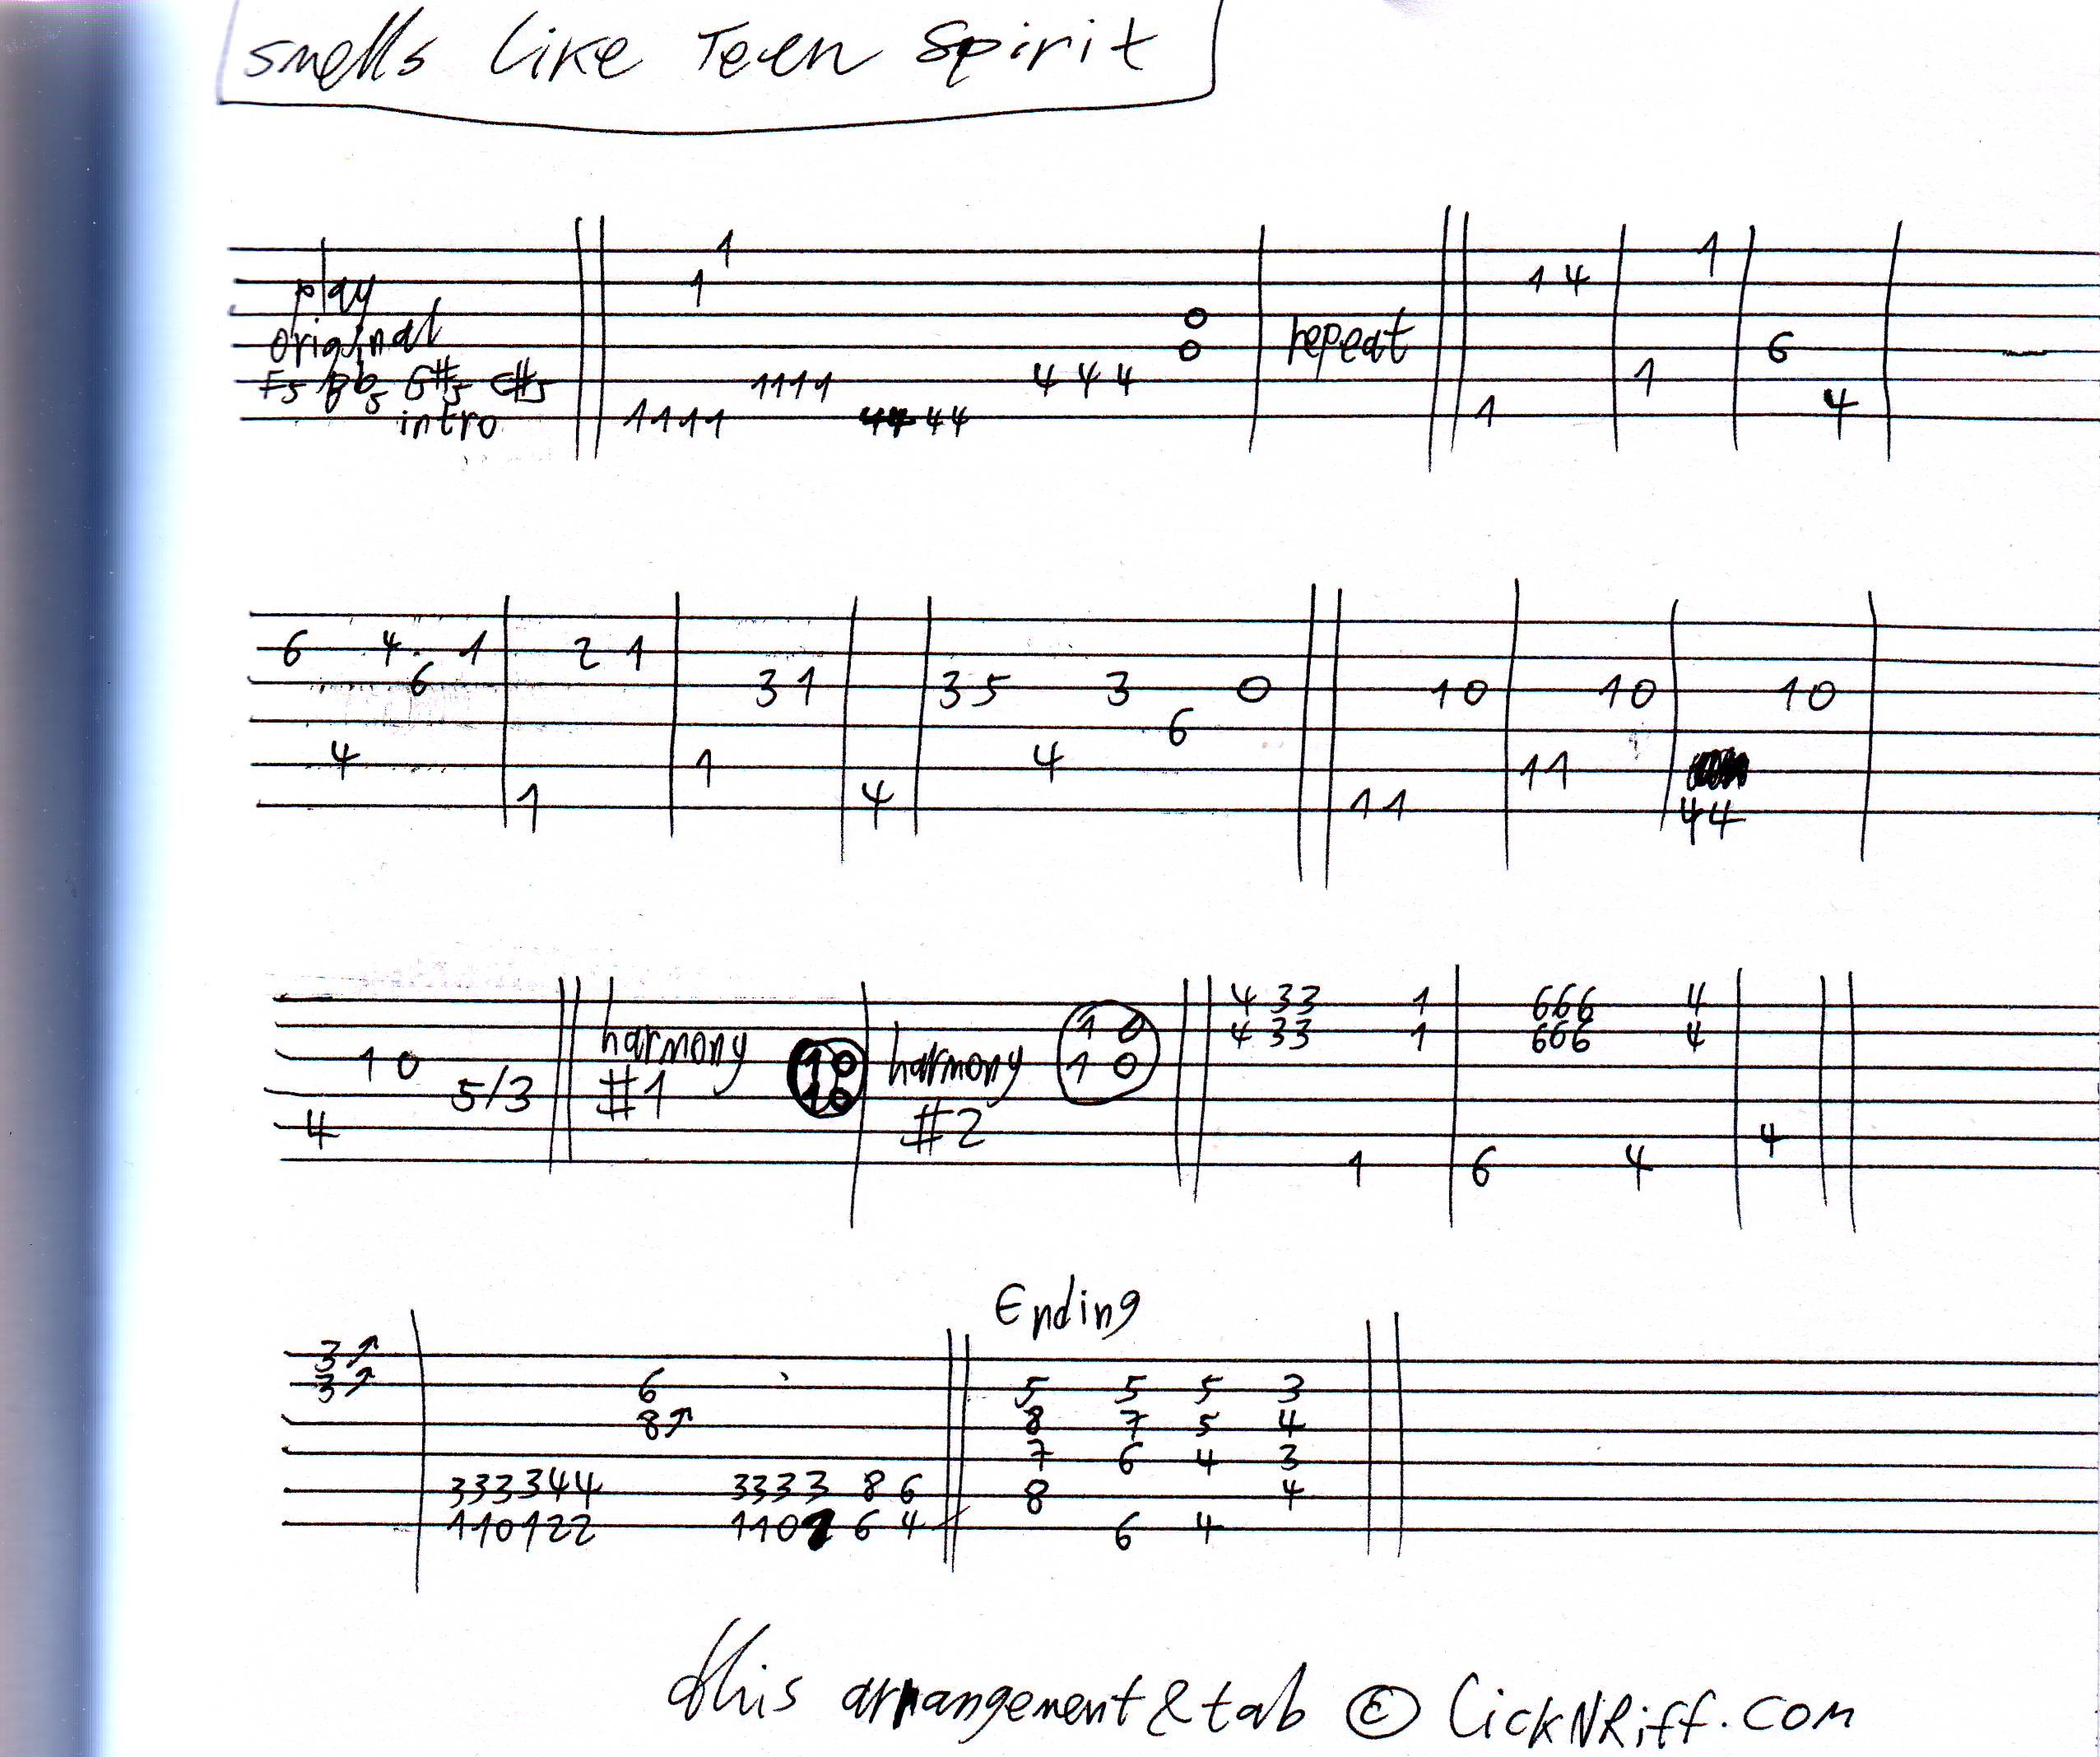 smells like Teen Spirit
1
1 4 1
play
original 0 repeat 6
0
F5 Bb5 G#5 C#5 1111 4 4 4 1 4
intro 1111 44 44 1
6 4 1 2 1
6 3 1 3 5 3 0 1 0 1 0 1 0
6
4 1 4 1 1
1 4 1 1 4 4
4 33 1 666 4
harmony 1 0 4 33 1 666 4
1 0 1 0 harmony 1 0
5/3 #1 1 0 #2
4 4
1 6 4
Ending
3↗
3↗ 6 5 5 5 3
8↗ 8 7 5 4
7 6 4 3
333344 3333 8 6 8 4
110122 110 6 4 6 4
this arrangement & tab © ClickNRiff.com